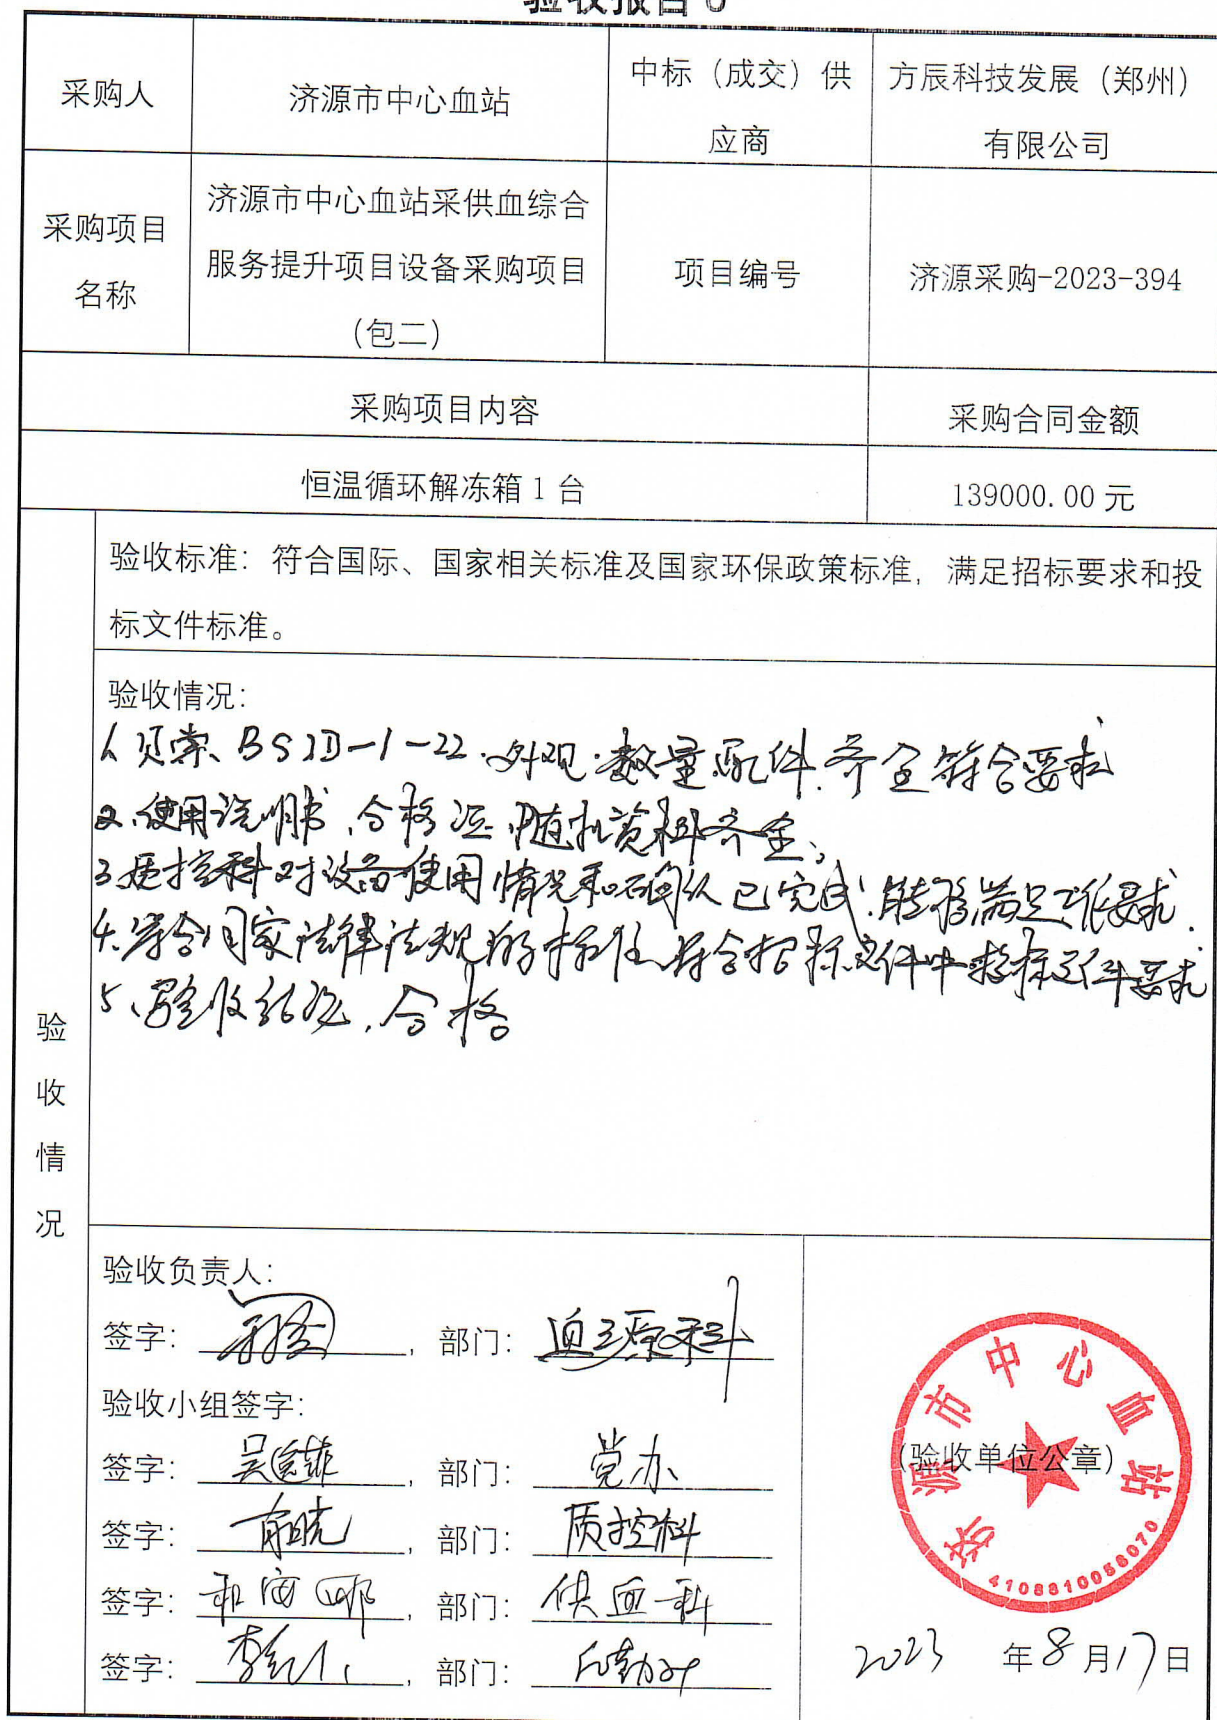 验收报告
采购人
济源市中心血站
中标（成交）供
应商
方辰科技发展（郑州）
有限公司
采购项目
名称
济源市中心血站采供血综合
服务提升项目设备采购项目
（包二）
项目编号
济源采购-2023-394
采购项目内容
采购合同金额
恒温循环解冻箱 1 台
139000.00 元
验收情况
验收标准：符合国际、国家相关标准及国家环保政策标准，满足招标要求和投
标文件标准。
验收情况：
1、贝索、BSJD-1-22.外观.数量.配件.齐全符合要求
2.使用说明书、合格证、随机资料齐全；
3.质控科对设备使用情况和确认已完成.能够满足工作要求.
4.符合国家法律法规的标准、符合招标文件中投标文件要求
5、验收结论，合格
验收负责人：
签字： ，部门：血源科
验收小组签字：
签字：吴 ，部门：党办
签字： 晓，部门：质控科
签字： ，部门：供血科
签字：李 ，部门：后勤科
济源市中心血站
（验收单位公章）
4108810056070
2023 年8月17日